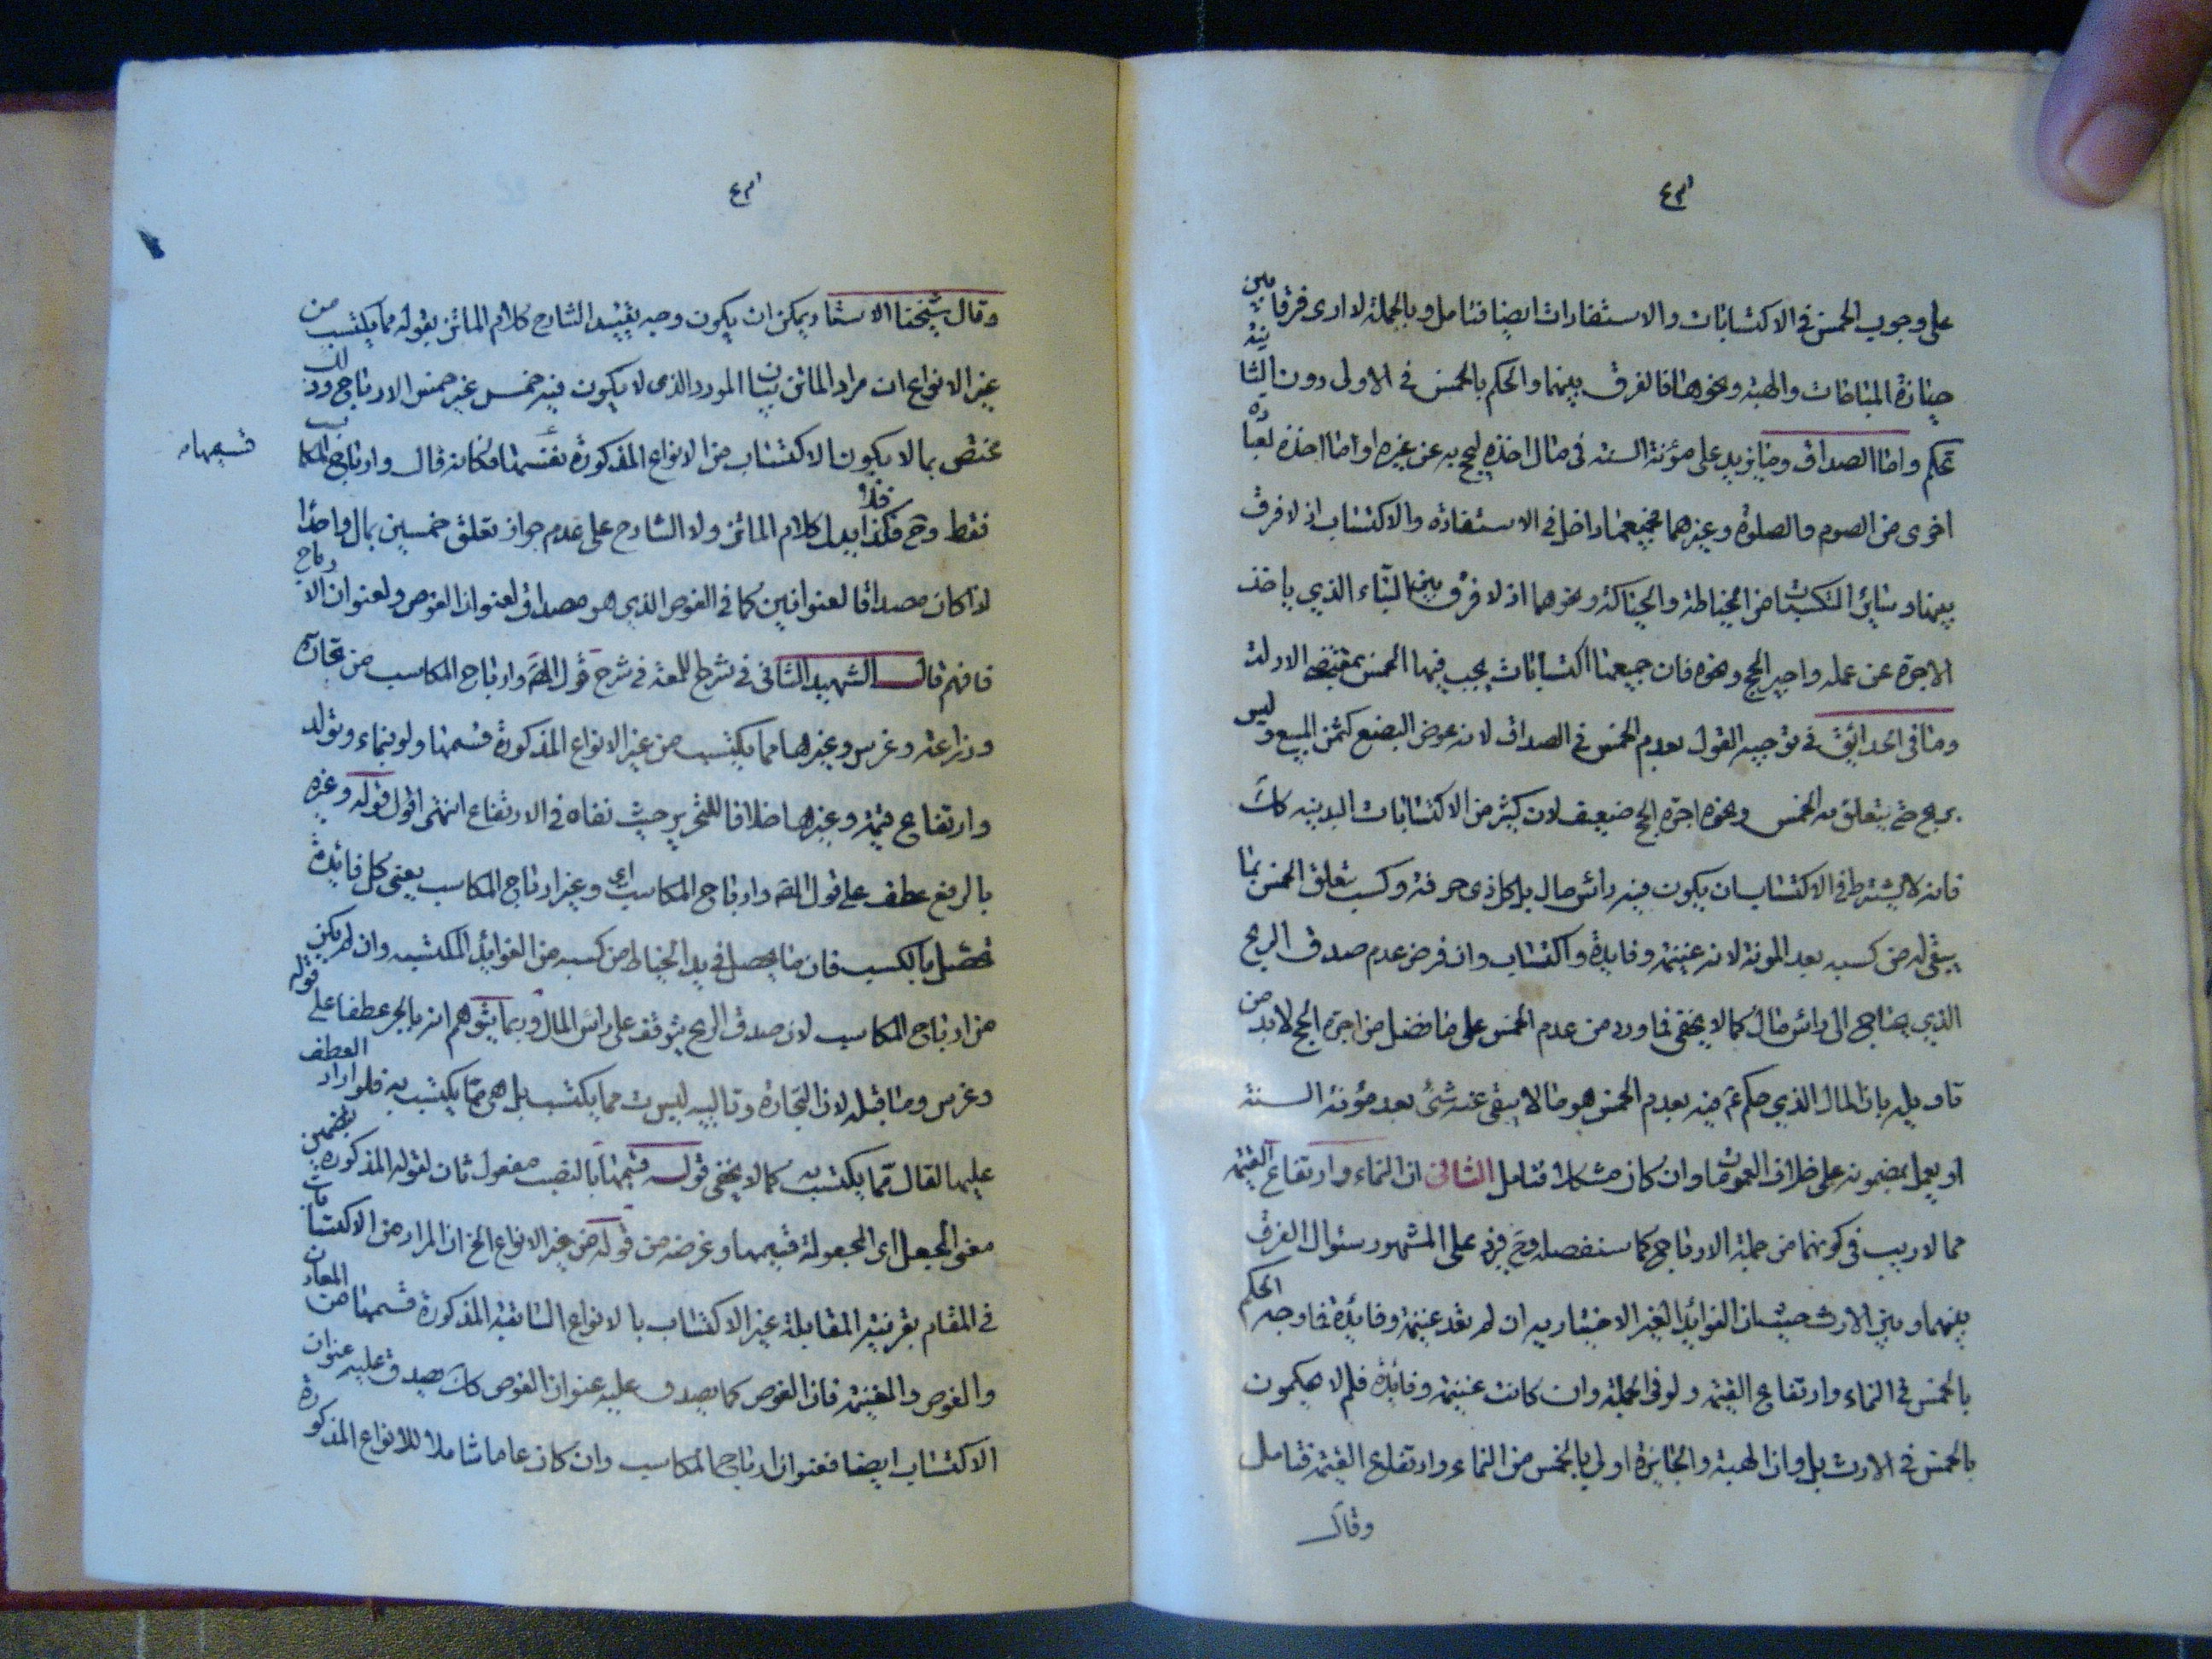 على وجوب الخمس في الاكتسابات والاستفادات ايضا فتامل وبالجملة لا ارى فرقا بين
حيازة المباحات والهبة ونحوهما فالفرق بينهما والحكم بالخمس في الاولى دون الثانية
تحكم واما الصداق وما يزيد على مؤنة السنة في مال اخذه ليحج به عن غيره او ما اخذه لعبادة
اخرى من الصوم والصلوة وغيرهما فجميعها داخل في الاستفاده والاكتساب اذ لا فرق
بينهما وسائر التكسبات من الخياطة والحياكة ونحوهما اذ لا فرق بين البناء الذي ياخذ
الاجرة عن عمله واجير الحج ونحوه فان جميعها اكتسابات يجب فيها الخمس بمقتضى الادلة
وما في الحدائق في توجيه القول بعدم الخمس في الصداق لانه عوض البضع كثمن المبيع وليس
بربح حتى يتعلق به الخمس ونحوه اجرة الحج ضعيف لان كثير من الاكتسابات البدنيه كك
فانه لا يشترط في الاكتساب ان يكون فيه رائس مال بل كل ذي حرفة وكسب يتعلق الخمس بما
يبقى له من كسبه بعد المونة لانه غنيمة وفايدة واكتساب وان فرض عدم صدق الربح
الذي يحتاج الى رائس مال كما لا يخفى فما ورد من عدم الخمس على ما فضل من اجرة الحج لا بد من
تاويله بان المال الذي حكم ع فيه بعدم الخمس هو ما لا يبقى عنه شئ بعد مؤنة السنة
او يعمل بمضمونه على خلاف العمومات وان كان مشكلا فتامل الثاني ان النماء وارتفاع القيمة
مما لا ريب في كونهما من جملة الارباح كما سنفصله وح فيرد على المشهور سئوال الفرق
بينهما وبين الارث حيث ان الفوائد الغير الاختياريه ان لم تعد غنيمة وفائدة فما وجه الحكم
بالخمس في النماء وارتفاع القيمة ولو في الجملة وان كانت غنيمة وفائدة فلم لا يحكمون
بالخمس في الارث بل وان الهبة والجايزة اولى بالخمس من النماء وارتفاع القيمة فتامل
وقال
وقال شيخنا الاستاد يمكن ان يكون وجه تقييد الشارح كلام الماتن بقوله مما يكتسب من
غير الانواع ان مراد الماتن بيان المورد الذي لا يكون فيه خمس غير خمس الارباح وذلك
مختص بما لا يكون الاكتساب من الانواع المذكورة قسمها فكانه قال وارباح المكاسب
قسيمها
فقط وح فلا يدل كلام الماتن ولا الشارح على عدم جواز تعلق خمسين بمال واحد
اذا كان مصداقا لعنوانين كما في الغوص الذي هو مصداق لعنوان الغوص ولعنوان الارباح
فافهم قال الشهيد الثاني في شرح اللمعة في شرح قول المص وارباح المكاسب من تجارة
وزراعة وغرس وغيرها مما يكتسب من غير الانواع المذكورة قسيمها ولو بنماء وتولد
وارتفاع قيمة وغيرها خلافا للتحرير حيث نفاه في الارتفاع انتهى اقول قوله وغيره
بالرفع عطف على قول المص وارباح المكاسب اي وغير ارباح المكاسب يعني كل فائدة
تحصل بالكسب فان ما يحصل في يد الخياط من كسبه من الفوائد المكتسبه وان لم يكن
من ارباح المكاسب لان صدق الربح يتوقف على رائس المال وربما يتوهم انه بالجر عطفا على قوله
وغرس وما قبله لان التجارة وتالييه ليست مما يكتسب بل هي مما يكتسب به فلو اراد العطف
عليها لقال مما يكتسب به كما لا يخفى قوله قسيمها بالنصب مفعول ثان لقوله المذكورة بتضمين
معنى الجعل اى المجعولة قسيمها وغرضه من قوله من غير الانواع الخ ان المراد من الاكتسابات
في المقام بقرينة المقابلة غير الاكتساب بالانواع السابقة المذكورة قسيمها من المعادن
والغوص والغنيمة فان الغوص كما يصدق عليه عنوان الغوص كك يصدق عليه عنوان
الاكتساب ايضا فعنوان ارباح المكاسب وان كان عاما شاملا للانواع المذكورة